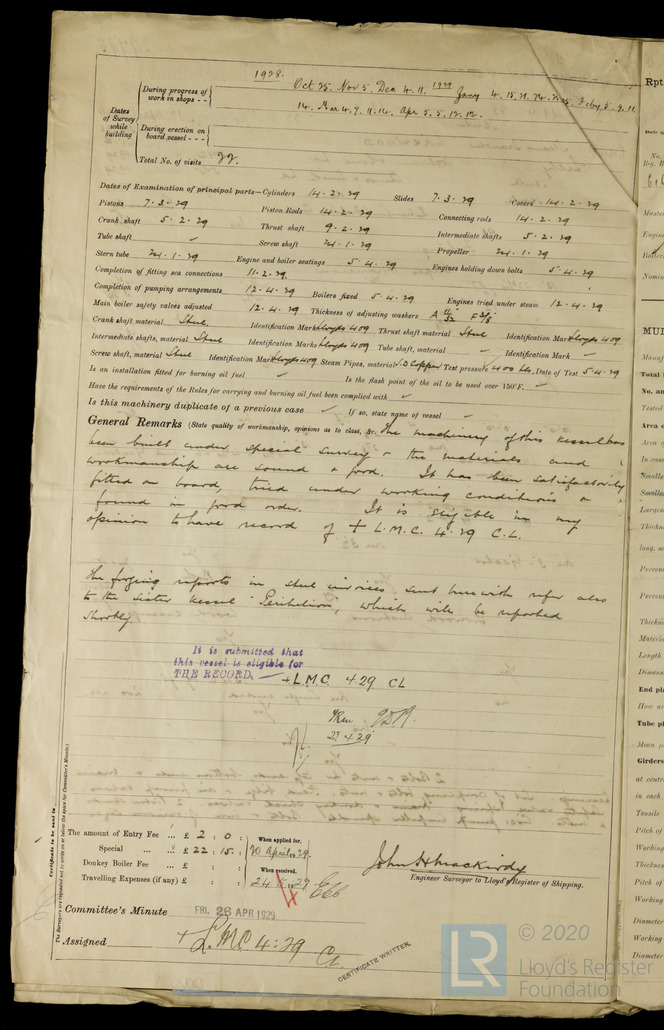 1928.
During progress of work in shops - - Oct 25. Nov 5. Dec 4. 11. 1929 Jany 4. 15. 21. 24. Feby 5. 9. 11.
14. Mar 4. 7. 11. 14. Apr 5. 12.
Dates of Survey while building
During erection on board vessel - - -
Total No. of visits 22.
Dates of Examination of principal parts—Cylinders 14.2.29 Slides 7.3.29 Covers 14.2.29
Pistons 7.3.29 Piston Rods 14.2.29 Connecting rods 14.2.29
Crank shaft 5.2.29 Thrust shaft 9.2.29 Intermediate shafts 5.2.29
Tube shaft ✓ Screw shaft 24.1.29 Propeller 24.1.29
Stern tube 24.1.29 Engine and boiler seatings 5.4.29 Engines holding down bolts 5.4.29
Completion of fitting sea connections 11.2.29
Completion of pumping arrangements 12.4.29 Boilers fixed 5.4.29 Engines tried under steam 12.4.29
Main boiler safety valves adjusted 12.4.29 Thickness of adjusting washers
Crank shaft material Steel Identification Mark Lloyds 409 Thrust shaft material Steel Identification Mark Lloyds 409
Intermediate shafts, material Steel Identification Marks Lloyds 409 Tube shaft, material ✓ Identification Mark ✓
Screw shaft, material Steel Identification Mark Lloyds 409 Steam Pipes, material S.D Copper Test pressure 400 lbs Date of Test 5.4.29
Is an installation fitted for burning oil fuel ✓ Is the flash point of the oil to be used over 150°F. ✓
Have the requirements of the Rules for carrying and burning oil fuel been complied with ✓
Is this machinery duplicate of a previous case ✓ If so, state name of vessel ✓
General Remarks (State quality of workmanship, opinions as to class, &c. The machinery of this vessel has
been built under special survey & the materials and
workmanship are sound & good. It has been satisfactorily
fitted on board, tried under working conditions &
found in good order. It is eligible in my
opinion to have record of + L.M.C. 4.29 C.L.
The forging reports in steel invoices sent herewith refer also
to the sister vessel which will be reported
shortly.
It is submitted that
this vessel is eligible for
THE RECORD. + L.M.C. 4 29 CL
23 4 29
Certificate to be sent to
The Surveyors are requested not to write on or below the space for Committee's Minute.
The amount of Entry Fee ... £ 2 : 0 : When applied for,
Special ... £ 22 : 15 : 20 April 1929.
Donkey Boiler Fee ... £ : : When received,
Travelling Expenses (if any) £ : : 24 19 29
John H Mackirdy
Engineer Surveyor to Lloyd's Register of Shipping.
Committee's Minute FRI. 26 APR 1929
Assigned + LMC 4:29 CL
CERTIFICATE WRITTEN.
LR © 2020
Lloyd's Register
Foundation
Rpt
MUL
Total
No. an
Area o
Smalle
Large
Thickn
Percent
Materia
Length
Dimens
End pla
How ar
Tube pl
Mean p
Girders
at centr
in each
Tensile
Pitch of
Working
Thickness
Pitch of
Working
Diameter
Working
Diameter